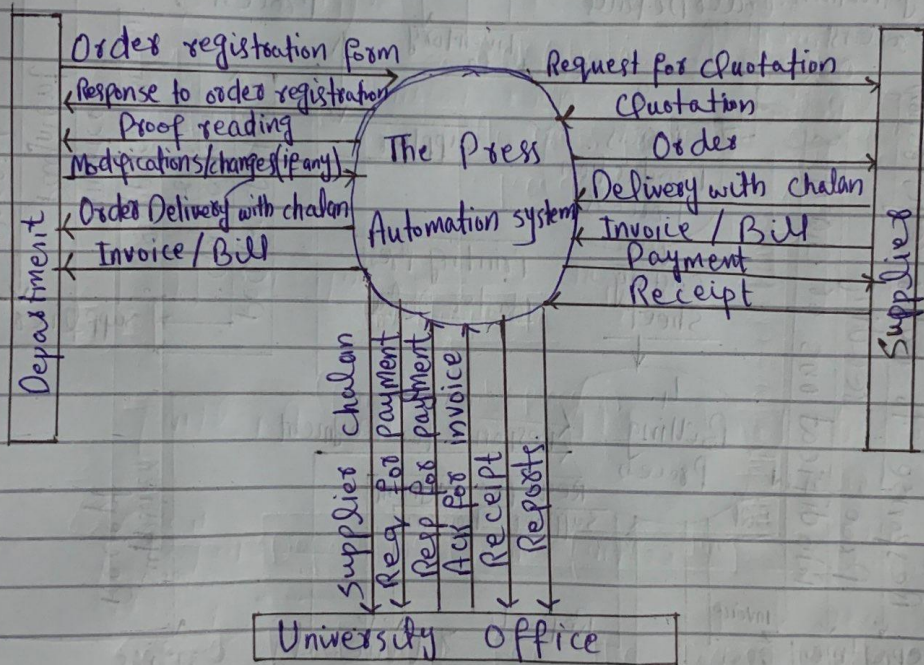 Order registration form
Response to order registration
Proof reading
Modifications/changes(if any)
Order Delivery with chalan
Invoice / Bill
Department
The Press
Automation system
Request for Quotation
Quotation
Order
Delivery with chalan
Invoice / Bill
Payment
Receipt
Supplier
Supplier chalan
Req for payment
Resp for payment
Ack for invoice
Receipt
Reports.
University Office